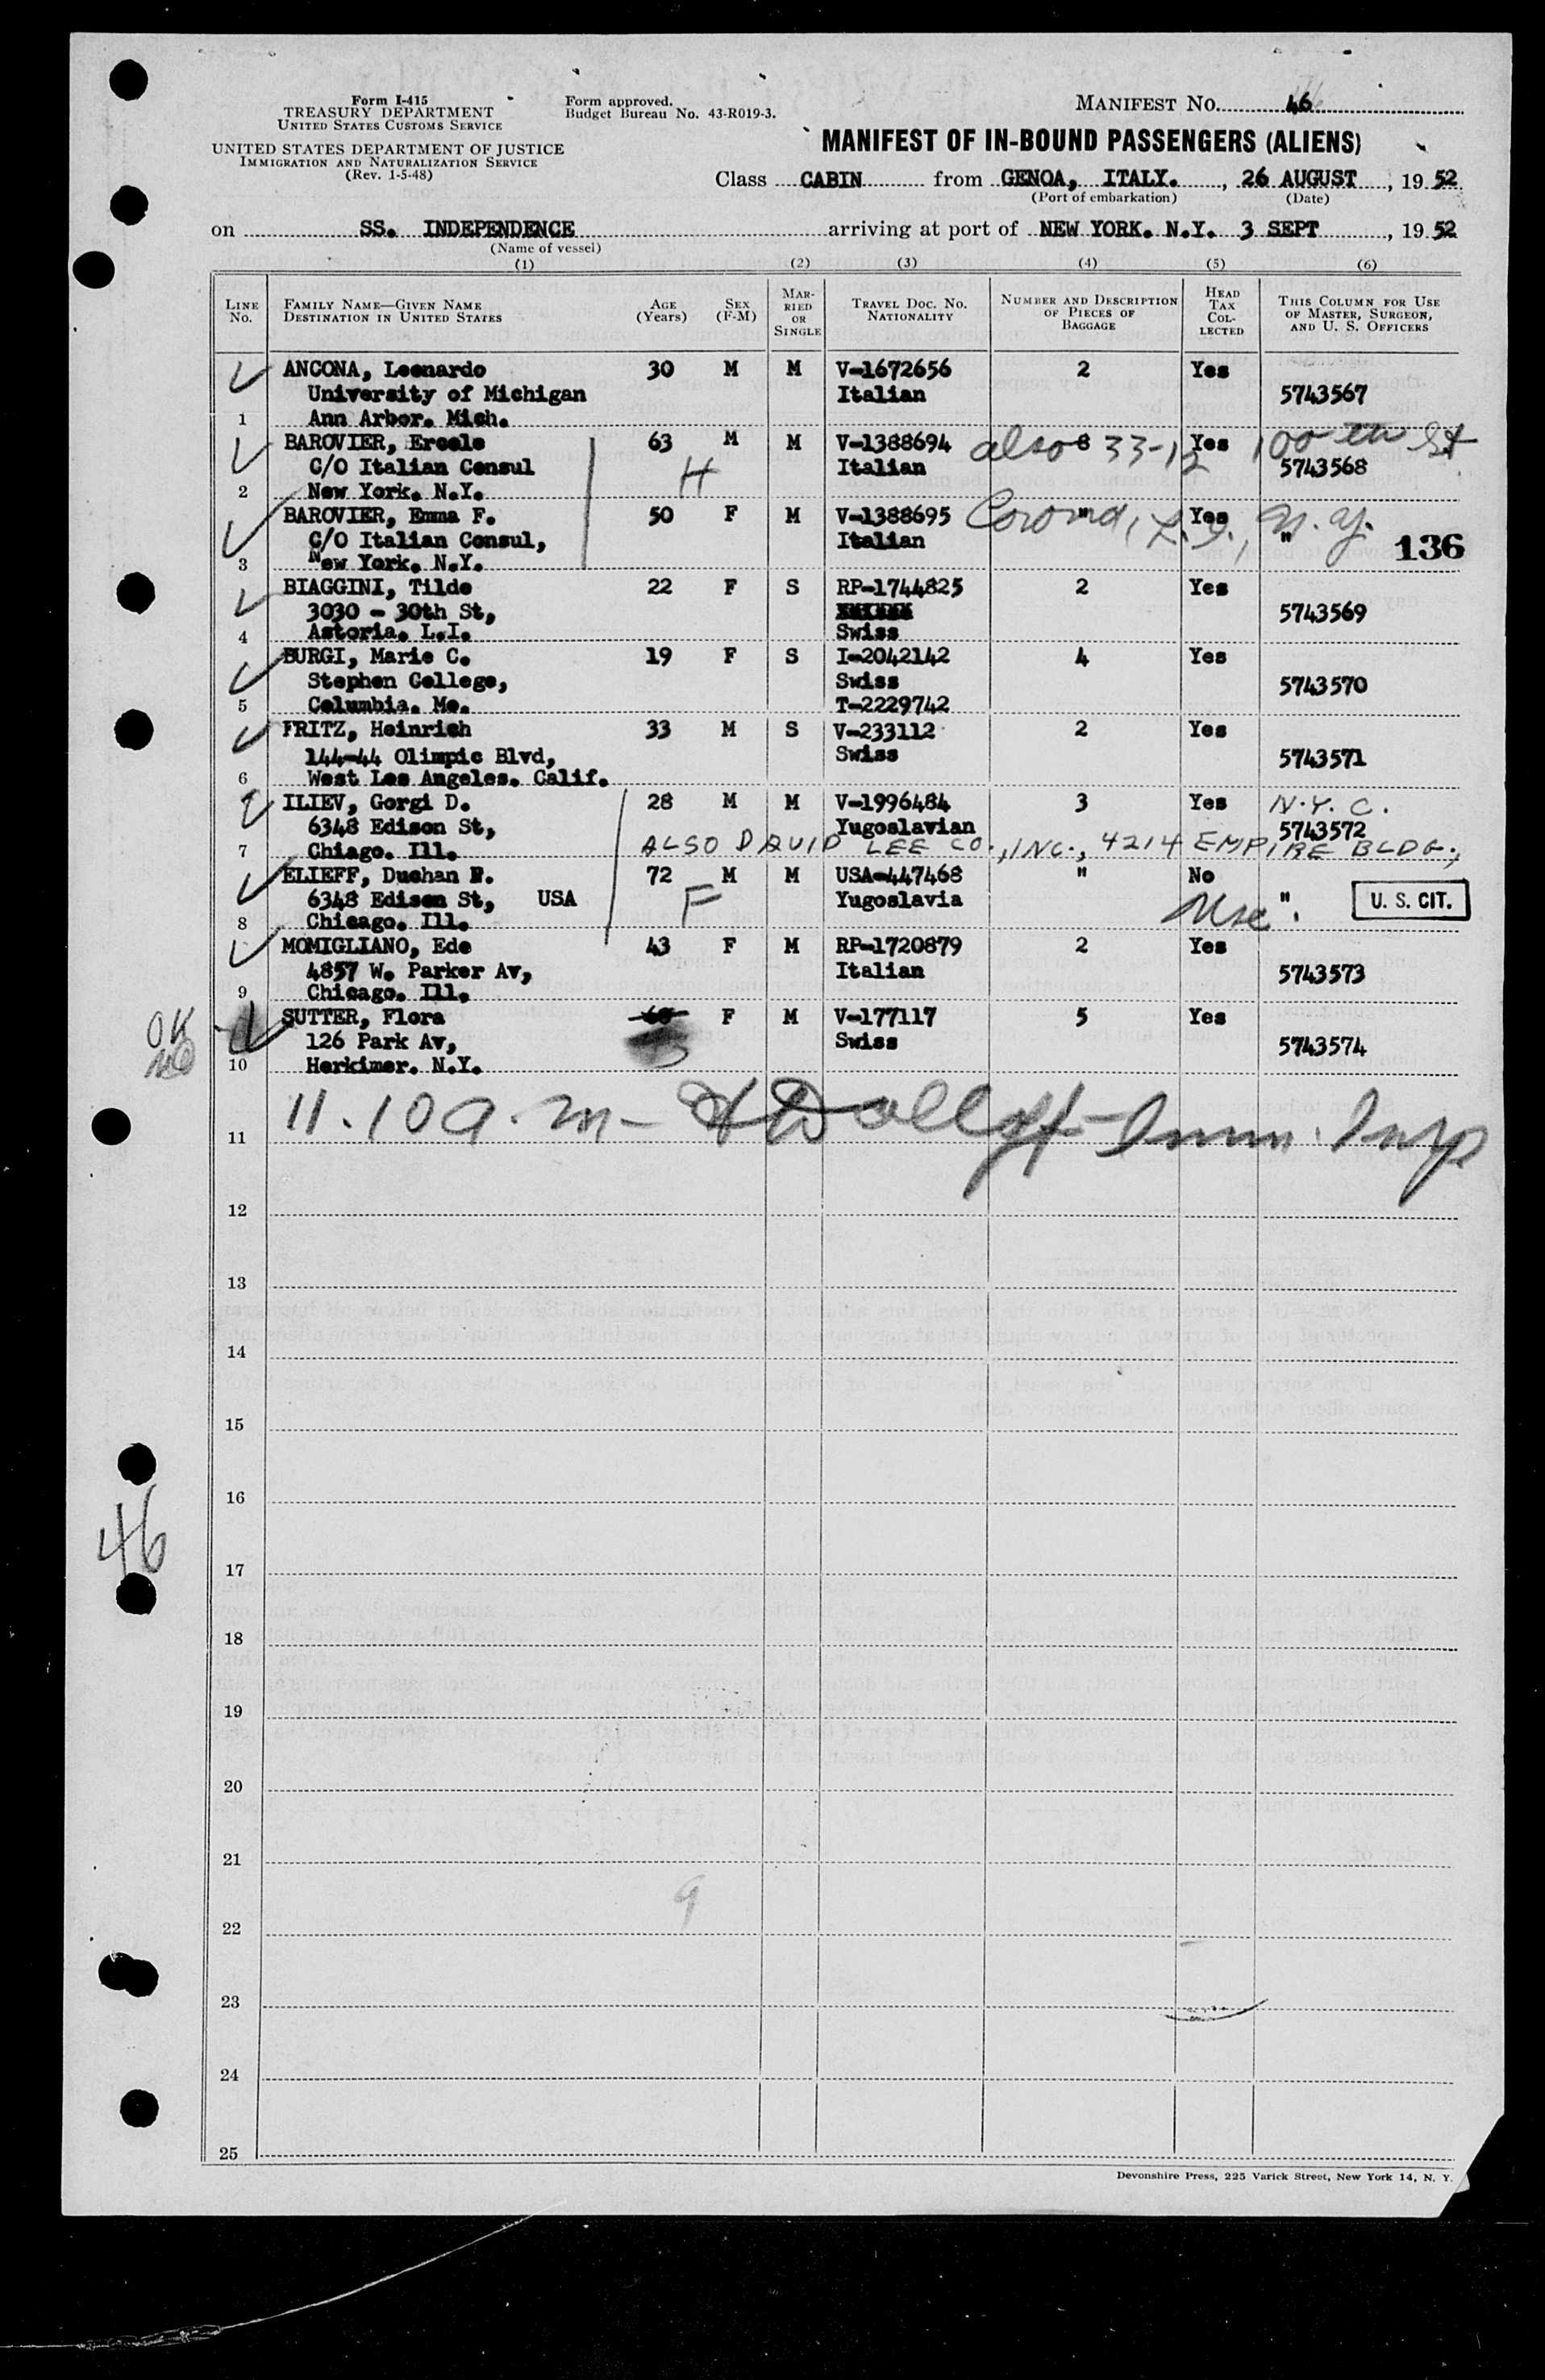 Form I-415
TREASURY DEPARTMENT
UNITED STATES CUSTOMS SERVICE
UNITED STATES DEPARTMENT OF JUSTICE
IMMIGRATION AND NATURALIZATION SERVICE
(Rev. 1-5-48)
Form approved.
Budget Bureau No. 43-R019-3.
MANIFEST NO. 46
MANIFEST OF IN-BOUND PASSENGERS (ALIENS)
Class CABIN from GENOA, ITALY. , 26 AUGUST , 19 52
(Port of embarkation) (Date)
on SS. INDEPENDENCE arriving at port of NEW YORK. N.Y. 3 SEPT , 19 52
(Name of vessel)
(1) (2) (3) (4) (5) (6)
LINE NO.
FAMILY NAME—GIVEN NAME
DESTINATION IN UNITED STATES
AGE (YEARS)
SEX (F-M)
MARRIED OR SINGLE
TRAVEL DOC. NO. NATIONALITY
NUMBER AND DESCRIPTION OF PIECES OF BAGGAGE
HEAD TAX COLLECTED
THIS COLUMN FOR USE OF MASTER, SURGEON, AND U. S. OFFICERS
ANCONA, Leonardo 30 M M V-1672656 2 Yes
University of Michigan Italian 5743567
1 Ann Arbor. Mich.
BAROVIER, Ercole 63 M M V-1388694 8 Yes
also 33-12 100 th St
C/O Italian Consul H Italian 5743568
2 New York. N.Y.
BAROVIER, Emma F. 50 F M V-1388695 " Yes
Corona, L.I., N.Y.
C/O Italian Consul, Italian "
136
3 New York. N.Y.
BIAGGINI, Tilde 22 F S RP-1744825 2 Yes
3030 - 30th St, 5743569
4 Astoria. L.I. Swiss
BURGI, Marie C. 19 F S I-2042142 4 Yes
Stephen College, Swiss 5743570
5 Columbia. Mo. T-2229742
FRITZ, Heinrich 33 M S V-233112 2 Yes
144-44 Olimpic Blvd, Swiss 5743571
6 West Los Angeles. Calif.
ILIEV, Gorgi D. 28 M M V-1996484 3 Yes N.Y.C.
6348 Edison St, Yugoslavian 5743572
7 Chiago. Ill. ALSO DAVID LEE CO., INC., 4214 EMPIRE BLDG.,
ELIEFF, Dushan 72 M M USA-447468 " No
6348 Edison St, USA F Yugoslavia " U. S. CIT.
8 Chicago. Ill.
MOMIGLIANO, Ede 43 F M RP-1720879 2 Yes
4857 W. Parker Av, Italian 5743573
9 Chicago. Ill.
OK
SUTTER, Flora F M V-177117 5 Yes
126 Park Av, Swiss 5743574
10 Herkimer. N.Y.
11.10 a.m - Imm. Insp
11
12
13
14
15
16
46
17
18
19
20
21
9
22
23
24
25
Devonshire Press, 225 Varick Street, New York 14, N. Y.